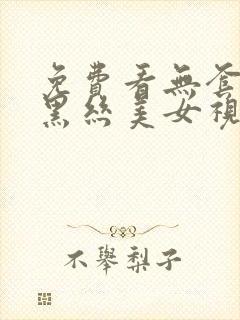 免費看無套
黑絲美女視
不舉梨子